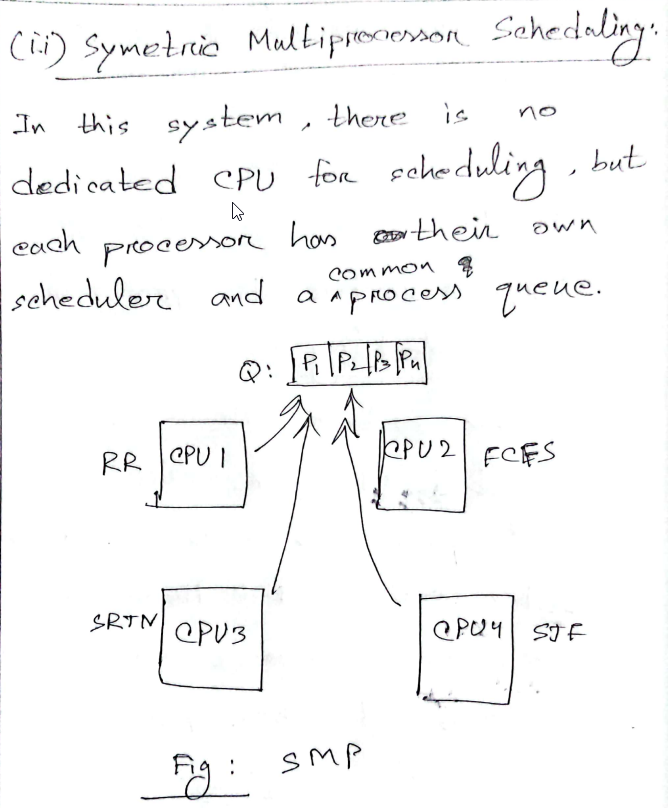 (ii) Symetric Multiprocessor Schedaling:
In this system, there is no
dedicated CPU for scheduling, but
each processor has their own
scheduler and a ^ common process queue.
Q: P1 P2 P3 Pn
RR CPU 1 CPU 2 FCFS
SRTN CPU3 CPU4 SJF
Fig: SMP